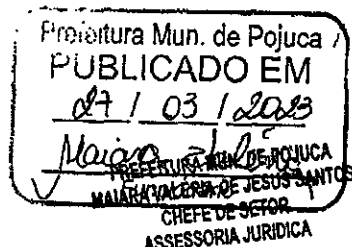 Prefeitura Mun. de Pojuca
PUBLICADO EM
27 / 03 / 2023
PREFEITURA MUN. DE POJUCA
MAIARA VALERIA DE JESUS SANTOS
CHEFE DE SETOR
ASSESSORIA JURIDICA